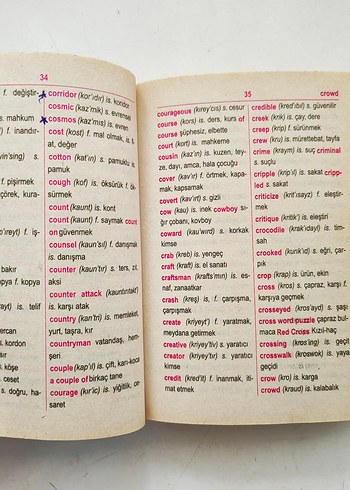 34
f. değiştir-
s. mahkum
f. inandır-
s.
f. pişirmek
çörek, kura-
f. iş-
bakır
f. kopya
is. telif
s. kordon
sır
is. köşe
s. ceset
s. doğru, ha-
corridor (kor'ıdır) is. koridor
cosmic (kaz'mik) s. evrensel
cosmos (kaz'mıs) is. evren
cost (kost) f. mal olmak, is. fi-
at, değer
cotton (kat'ın) s. pamuklu is.
pamuk
cough (kof) is. öksürük f. ök-
sürmek
count (kaunt) is. kont
count (kaunt) f. saymak count
on güvenmek
counsel (kaun'sıl) f. danışmak
is. danışma
counter (kaun'tır) s. ters, zıt,
aksi
counter attack (kauntırıtäk')
is. karşı atak
country (kan'tri) is. memleket,
yurt, taşra, kır
countryman vatandaş, hem-
şeri
couple (kap'ıl) is. çift, karı-koca
a couple of birkaç tane
courage (kır'ic) is. yiğitlik, ce-
saret
35
crowd
courageous (kırey'cıs) s. cesur
course (kors) is. ders, kurs of
course şüphesiz, elbette
court (kort) is. mahkeme
cousin (kaz'in) is. kuzen, tey-
ze, dayı, amca, hala çocuğu
cover (kav'ır) f. örtmek, kapa-
mak, kapsamak
covert (kav'ırt) s. gizli
cow (kau) is. inek cowboy sı-
ğır çobanı, kovboy
coward (kau'wırd) s. korkak
kimse
crab (kreb) is. yengeç
craft (kraft) is. el sanatı
craftsman (krafts'mın) is. es-
naf, zanaatkar
crash (kreş) is, f. çarpışma,
çarpışmak
create (kriyeyt') f. yaratmak,
meydana getirmek
creative (kriyey'tiv) s. yaratıcı
creator (kriyey'tır) s. yaratıcı
kimse
credit (kred'it) f. inanmak, iti-
mat etmek
credible (kred'ıbıl) s. güvenilir
creek (krik) is. çay, dere
creep (krip) f. sürünmek
crew (kru) is. mürettebat, tayfa
crime (kraym) is. suç criminal
s. suçlu
cripple (krip'ıl) is. sakat cripp-
led s. sakat
criticize (krit'ısayz) f. eleştir-
mek
critique (kritik') is. eleştiri
crocodile (krak'ıdayl) is. tim-
sah
crooked (kurık'id) s. eğri, çar-
pık
crop (krap) is. ürün, ekin
cross (kros) s. çapraz, karşı f.
karşıya geçmek
crosseyed (kros'ayd) s. şaşı
cross word puzzle çapraz bul-
maca Red Cross Kızıl-haç
crossing (kros'ing) is. geçit
crosswalk (kroswok) is. yaya
geçidi
crow (kro) is. karga
crowd (kraud) is. kalabalık